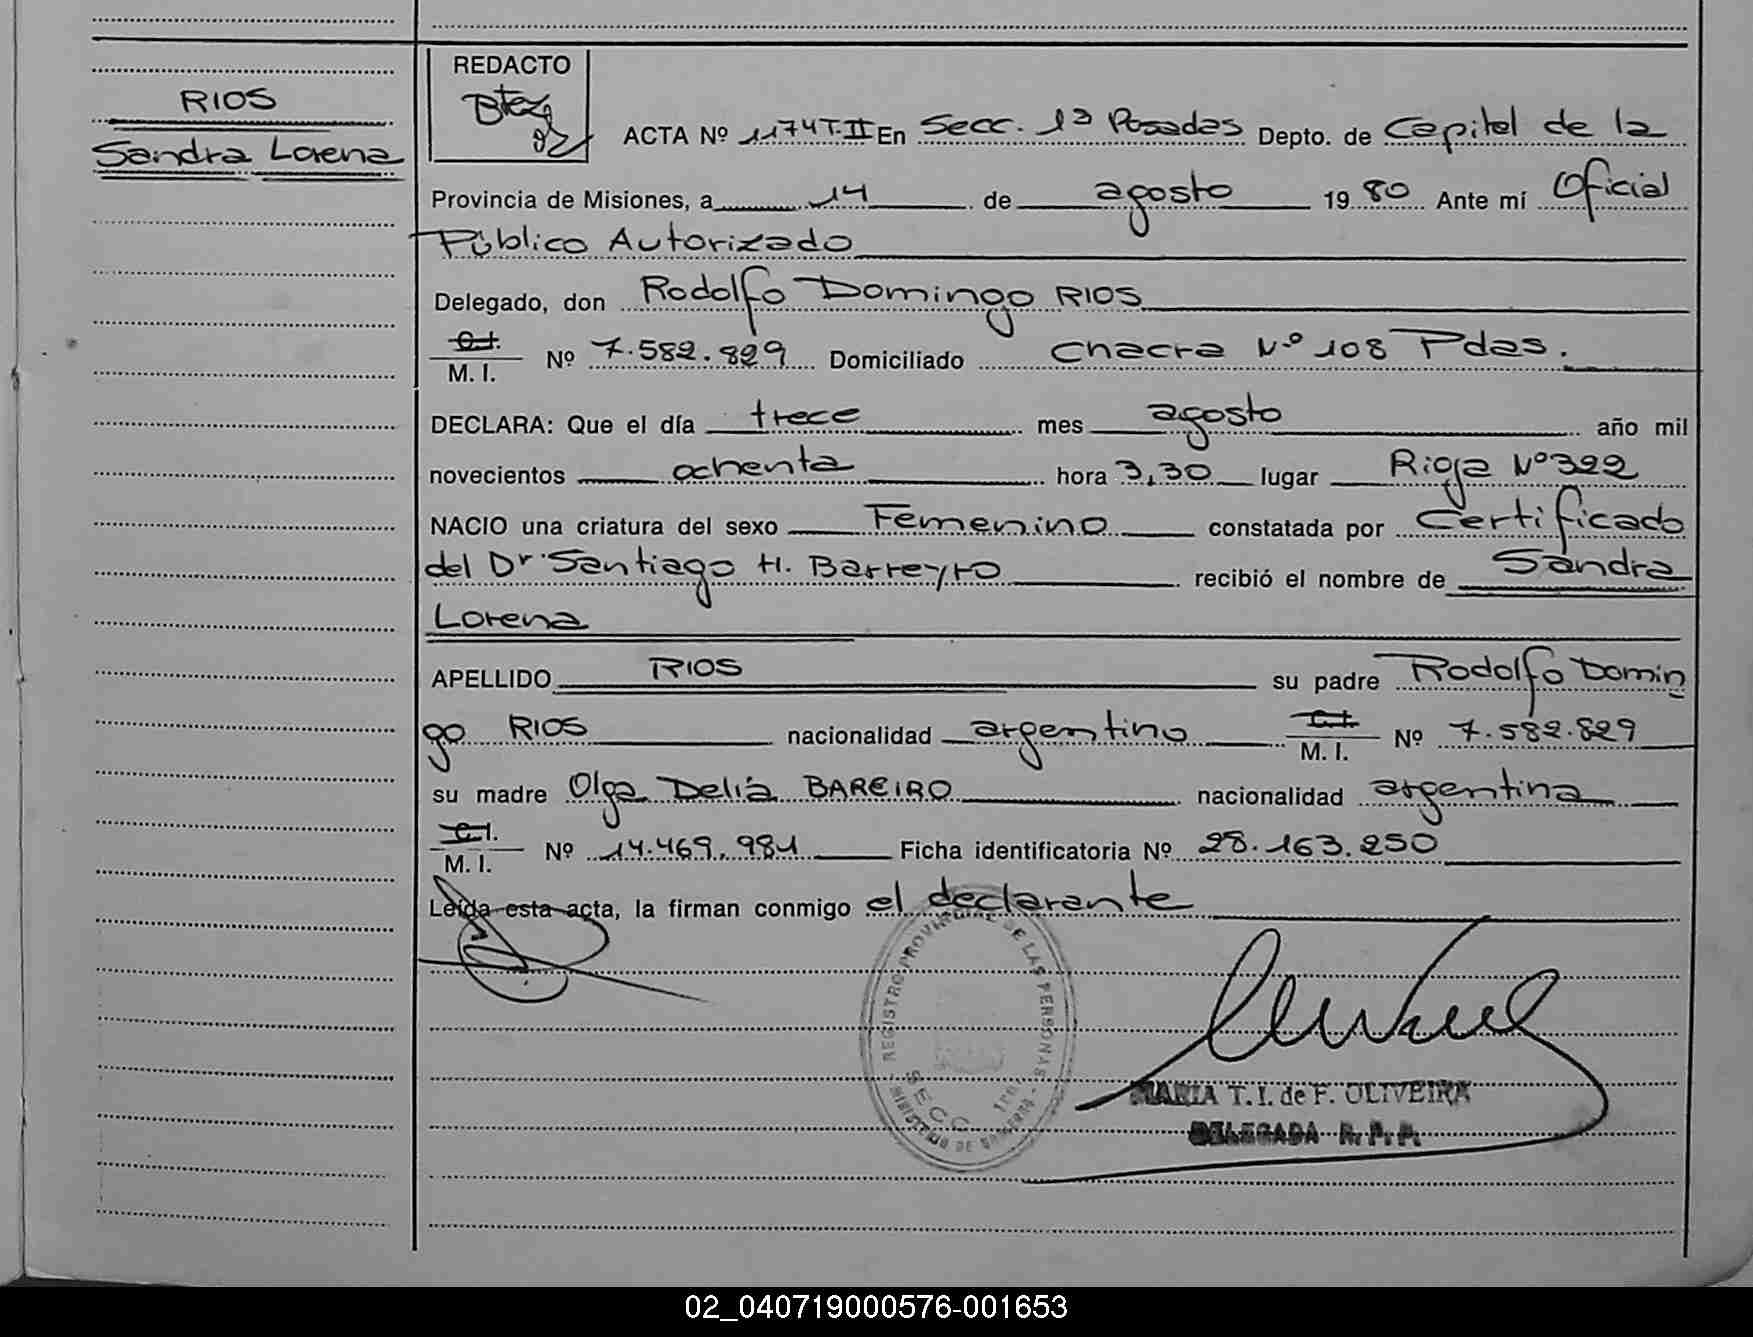 RIOS
Sandra Lorena
REDACTO
ACTA Nº 1174 T. II En Secc. 1ª Posadas Depto. de Capital de la
Provincia de Misiones, a 14 de agosto 19 80 Ante mí Oficial
Público Autorizado
Delegado, don Rodolfo Domingo RIOS
C.I.
M. I. Nº 7.582.829 Domiciliado Chacra Nº 108 Pdas.
DECLARA: Que el día trece mes agosto año mil
novecientos ochenta hora 3,30 lugar Rioja Nº 322
NACIO una criatura del sexo Femenino constatada por Certificado
del Dr. Santiago H. Barreyro recibió el nombre de Sandra
Lorena
APELLIDO RIOS su padre Rodolfo Domin
go RIOS nacionalidad argentino C.I. M. I. Nº 7.582.829
su madre Olga Delia BAREIRO nacionalidad argentina
C.I.
M. I. Nº 14.469.981 Ficha identificatoria Nº 28.163.250
Leída esta acta, la firman conmigo el declarante
REGISTRO PROVINCIAL DE LAS PERSONAS
SECC. 1ra.
MINISTERIO DE GOBIERNO
MARIA T. I. de F. OLIVEIRA
DELEGADA R. P. P.
02_040719000576-001653